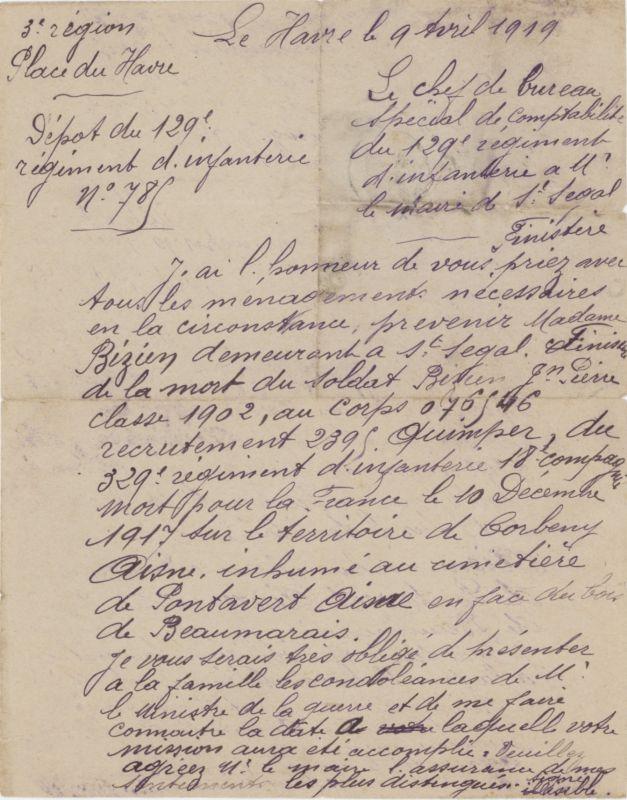 3e région
Place du Havre
Le Havre le 9 Avril 1919
Dépot du 129e
régiment d'infanterie
N° 785
Le chef de bureau
spécial de comptabilité
du 129e régiment
d'infanterie a Mr
le maire de St Segal
Finistère
J. ai l. honneur de vous priez avec
tous les ménagements nécessaires
en la circonstance, prevenir Madame
Bizien demeurant a St Segal. Finistè
de la mort du soldat Bizien Jn Pierre
classe 1902, au corps 0765
recrutement 2395 Quimper, du
329e régiment d'infanterie 18e compagnie
mort pour la France le 10 Décembre
1917 sur le territoire de Corbeny
Aisne. inhumé au cimetière
de Pontavert Aisne en face du bois
de Beaumarais.
Je vous serais très obligé de présenter
a la famille les condoléances de Mr
le Ministre de la guerre et de me faire
connaitre la date a laquelle votre
mission aura été accomplie. Veuillez
agréez Mr le maire l'assurance de mes
sentiments les plus distingués. signé
illisible.